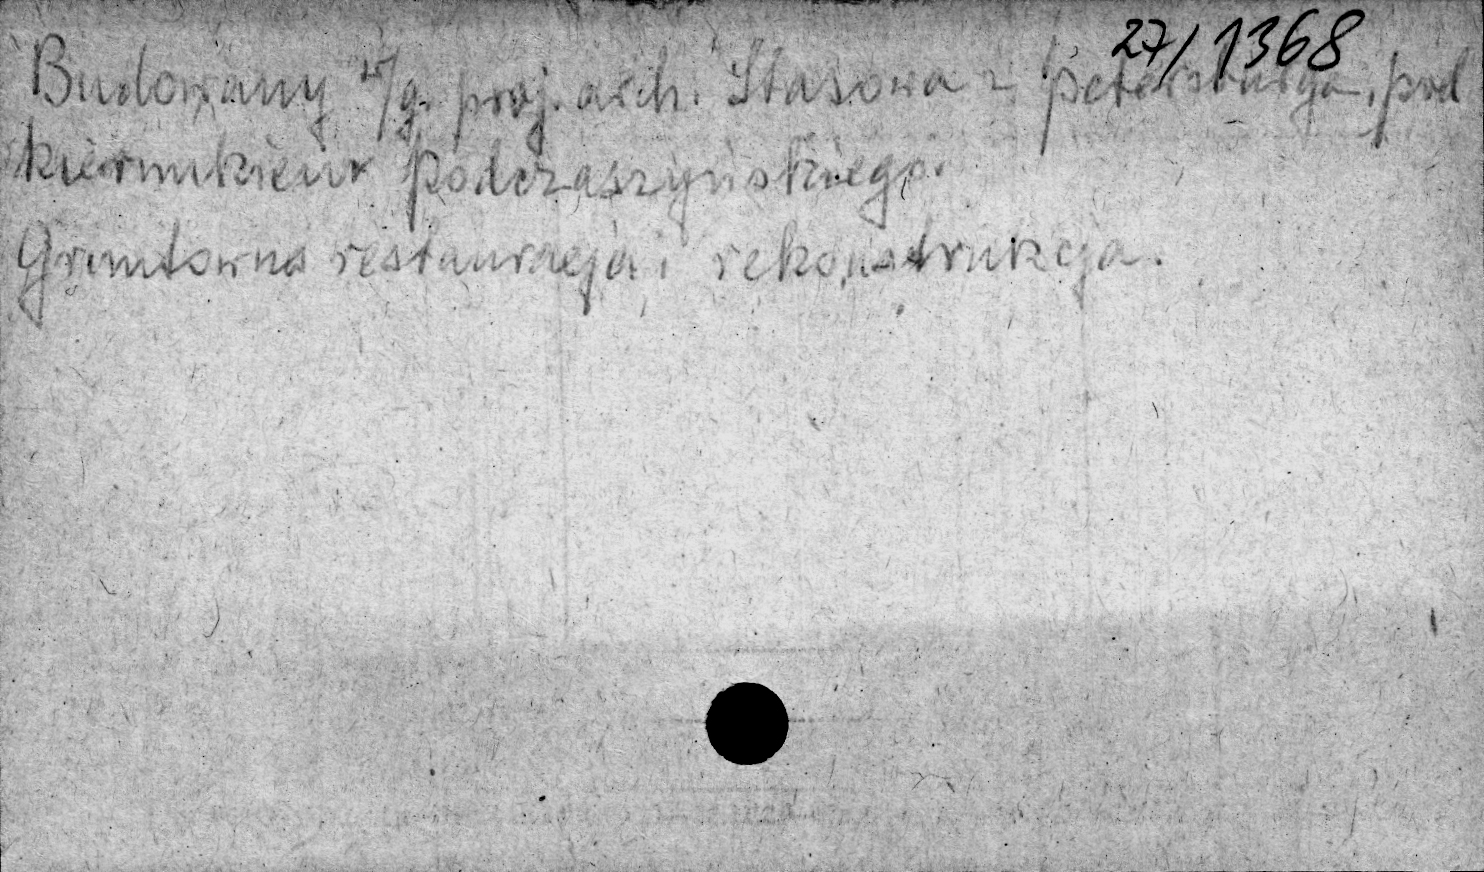 27/1368
Budowany w/g. proj. arch. Stasowa z Petersburga, pod
kierunkiem Podczaszyńskiego.
Gruntowna restauracja i rekonstrukcja.